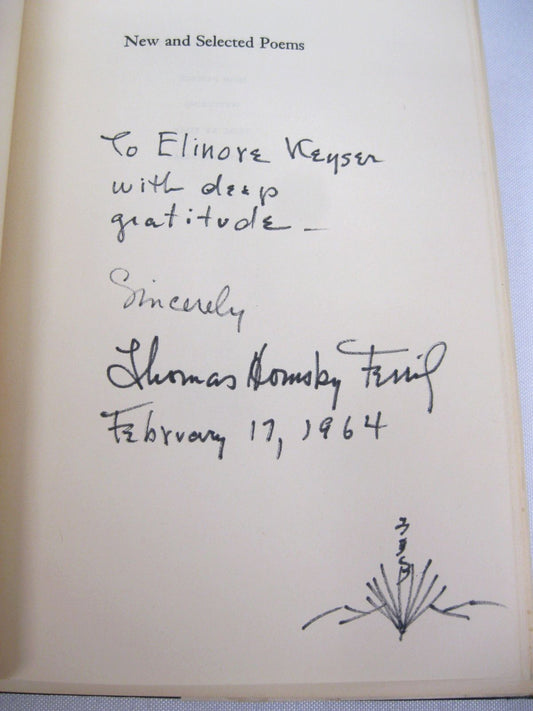 New and Selected Poems
To Elinore Keyser
with deep
gratitude —
Sincerely
Thomas Hornsby Ferril
February 17, 1964